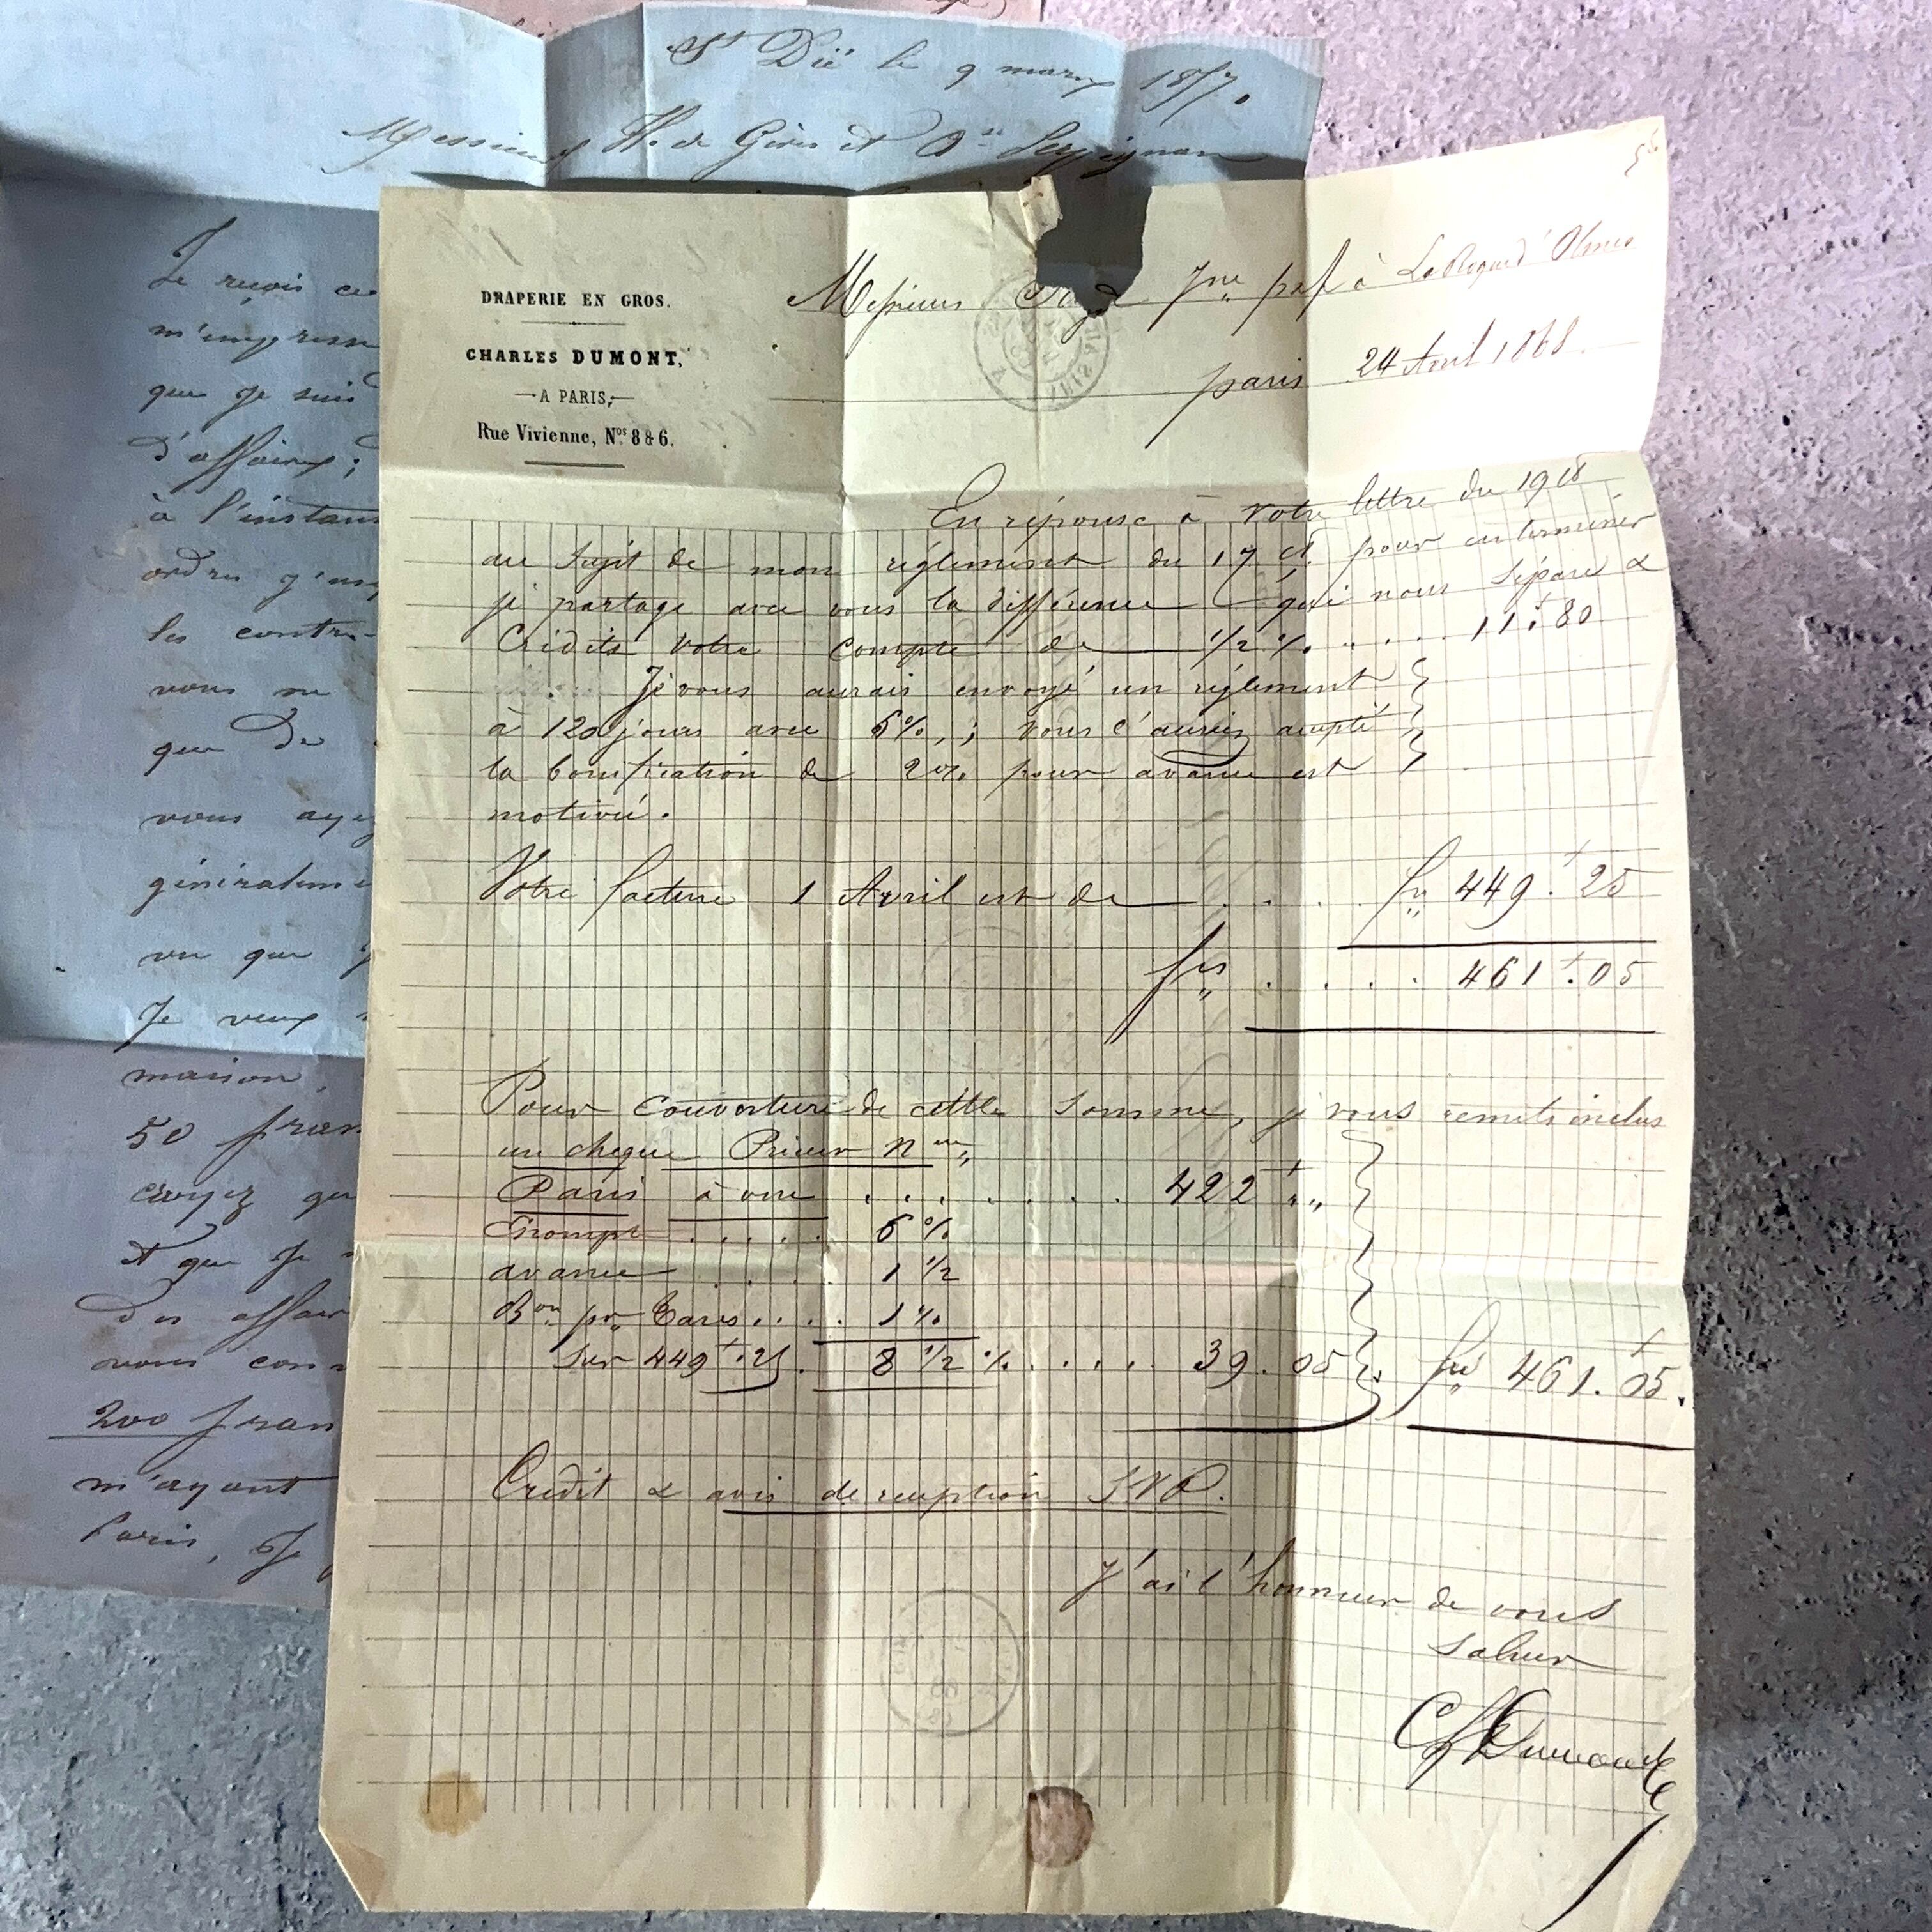 St Dié le 9 mars 1857.
Messieurs H. de Gères et
Je reçois ce
m'empresse
que je suis
d'affaires ;
à l'instant
ordres j'
les contre-
vous
que de
vous ayez
généraleme
vu que
Je veux
maison,
50 fran
croyez qu
et que je
des affair
vous con
200 fran
m'ayant
Paris, Je
DRAPERIE EN GROS.
CHARLES DUMONT,
A PARIS,
Rue Vivienne, Nos 8 & 6.
Messieurs Jne à Laroque d'Olmes
paris 24 Avril 1868.
En réponse à votre lettre du 19
au sujet de mon réglement du 17 ct. pour en terminer
je partage avec vous la différence qui nous sépare &
Crédite votre compte de 1/2 % . . . . 11f.80
Je vous aurais envoyé un réglement
à 120 jours avec 6%, ; vous l'auriez accepté
la bonification de 2% pour avance est
motivée.
Votre facture 1 Avril est de . . . . frs 449f.25
frs . . . . 461f.05
Pour couverture de cette somme, je vous remets inclus
un chèque
Paris à vue . . . . . . . 422f „„
Escompte . . . . . 6 %
avance . . . . 1 1/2
Bon pr Paris . . . . 1 %
sur 449f.25. 8 1/2 % . . . . . 39.05 frs 461f.05.
Crédit & avis de reception S.V.P.
J'ai l'honneur de vous
saluer
Ch Dumont